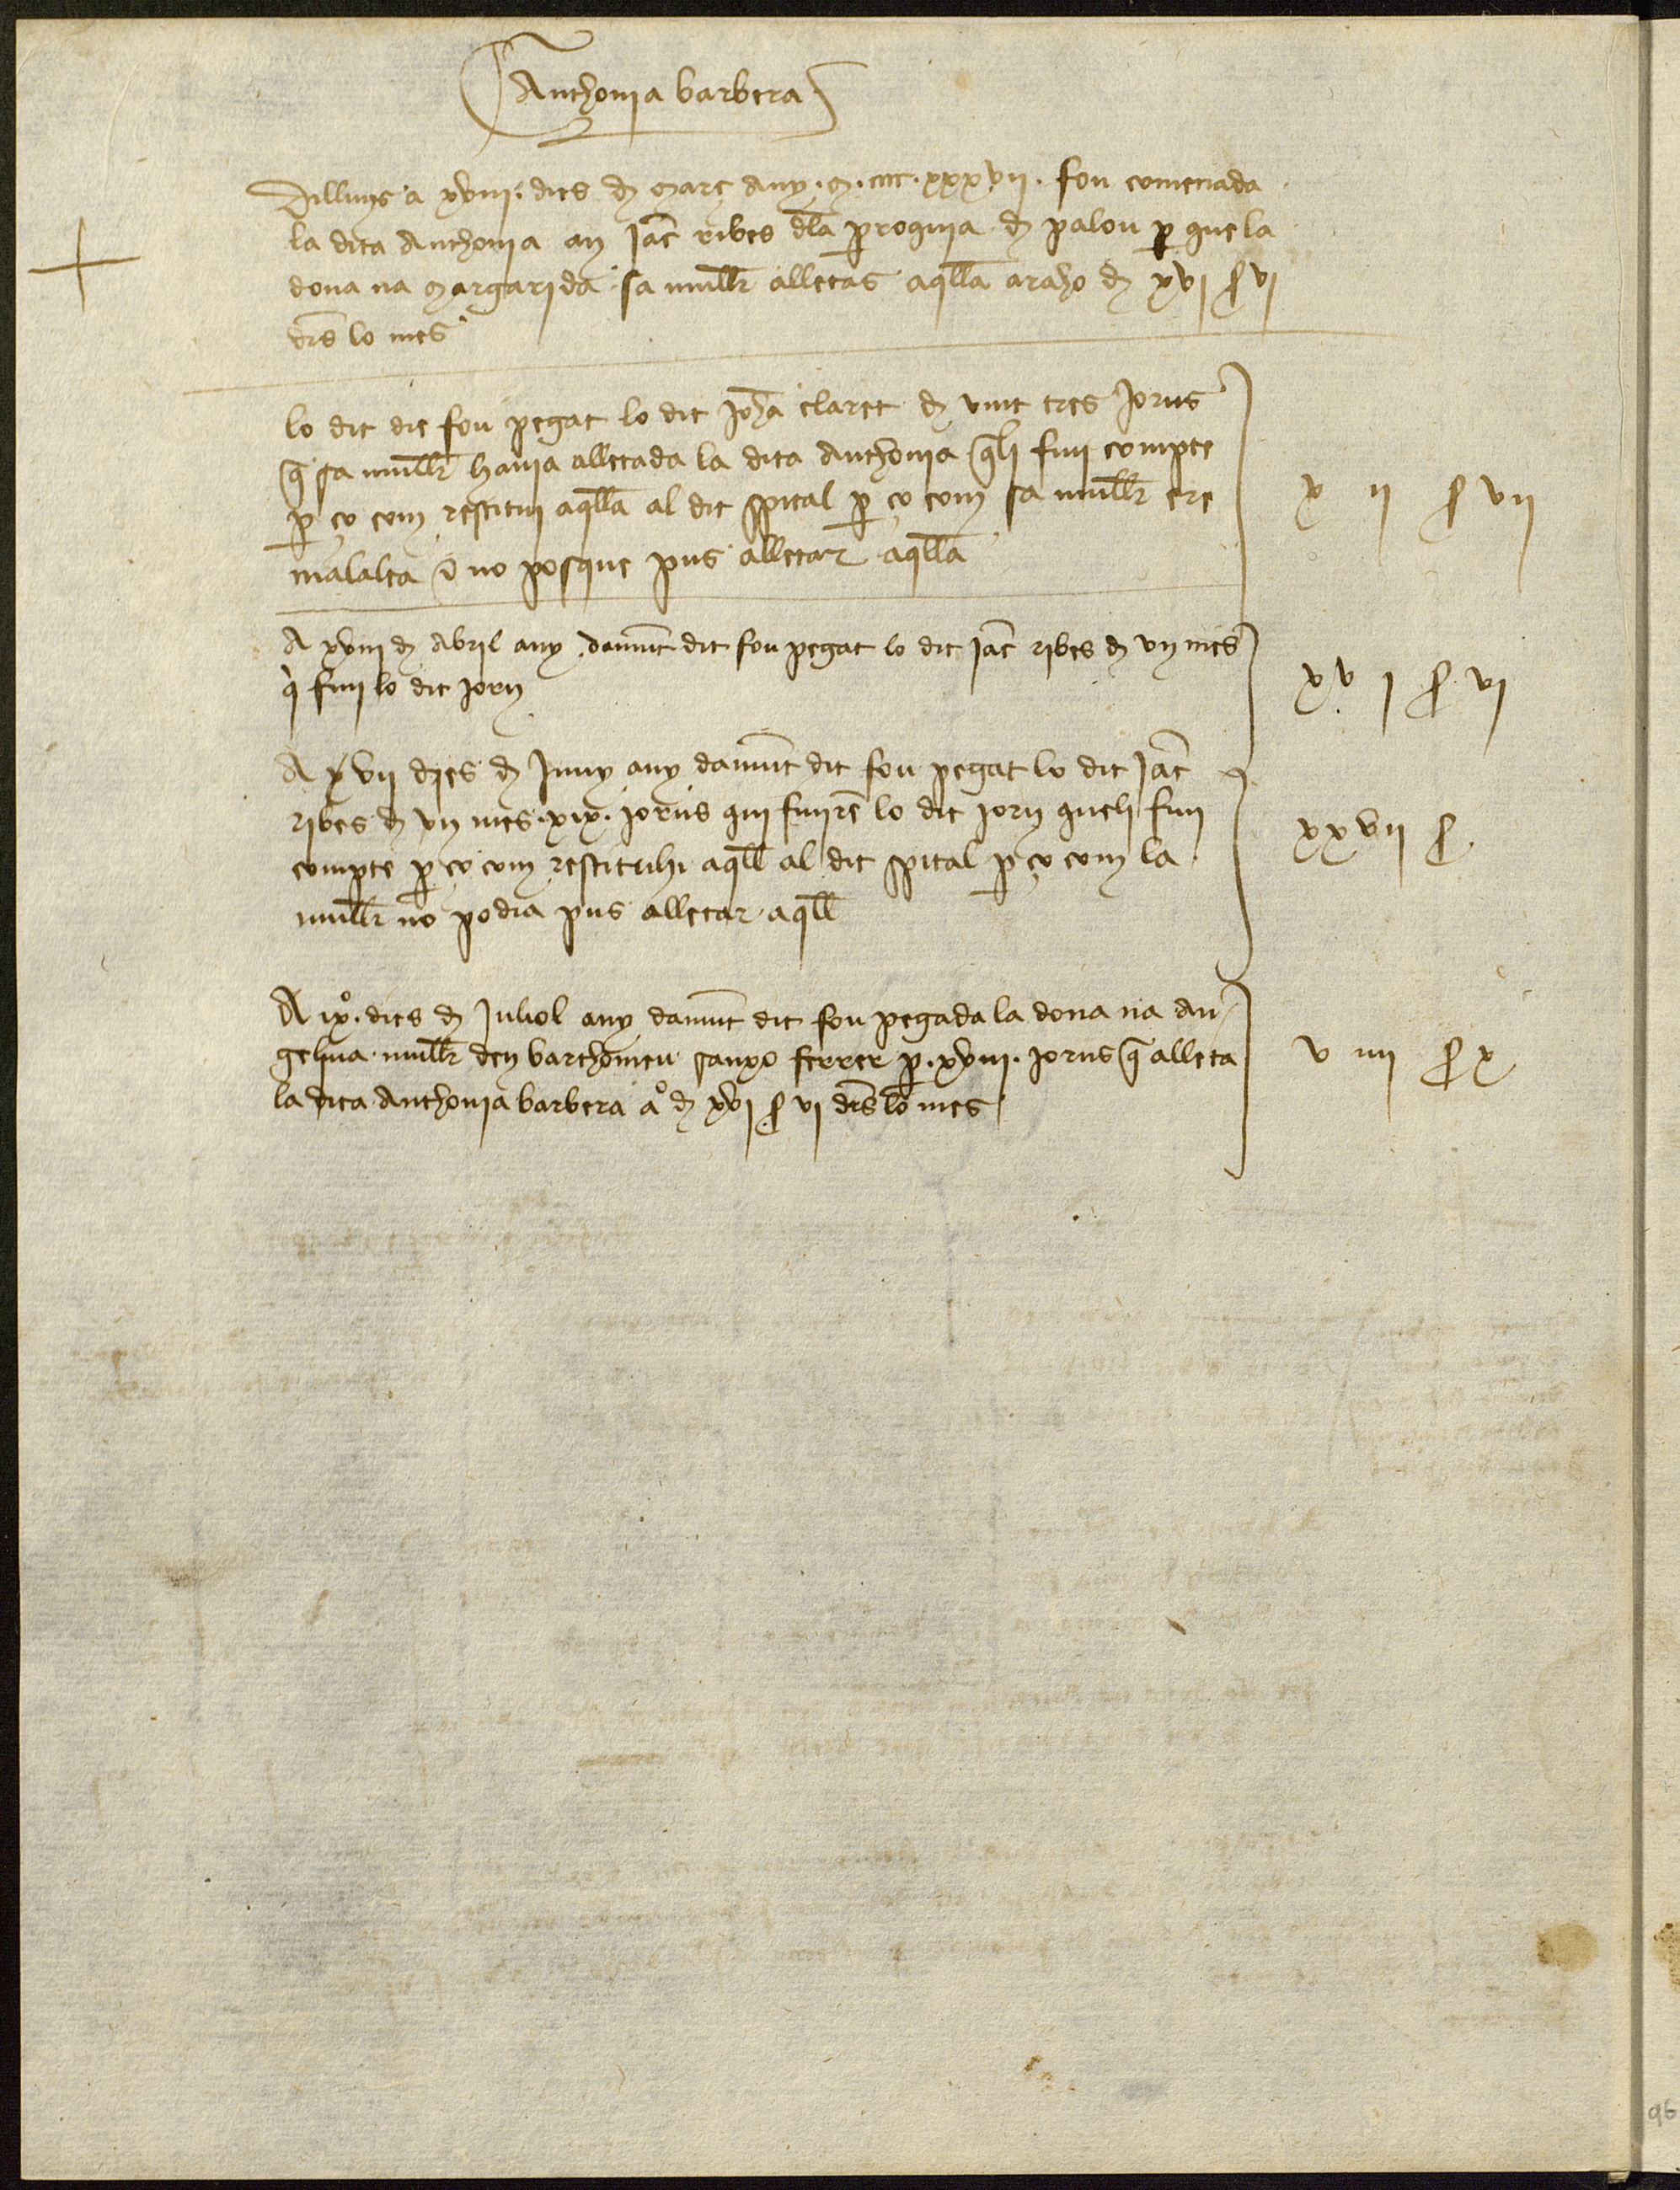 Anthonia barbera
Dilluns a xviii dies de març any .M.cccc.xxxvii. fou comenada
la dita Anthonia an Jac̄ ribes dla proquia de palou p que la
dona na margarida sa mullr̄ alletas aqlla araho de xvi ß vi
drs lo mes
lo dit die fou pagat lo dit Johā claret de vint tres Jorns
q̄ sa mullr̄ havia alletada la dita Anthonia q̄li fini compte
p ço com restituı aqlla al dit spital p ço com sa mullr̄ ere
malalta e no posque pus alletar aqlla
x ii ß vii
A xviii de Abril any damūt dit fou pagat lo dit Jac̄ ribes de vn mes
q̇ fini lo dit Jorn
xv i ß vi
A xvii dies de Juny any damūt dit fou pagat lo dit Jac̄
ribes de vn mes .xix. Jorns qui finirē lo dit Jorn queli fini
compte p ço com restituhi aqll al dit spital p ço com la
mullr̄ no podia pus alletar aqll
xxvii ß
A ixº dies de Juliol any damūt dit fou pagada la dona na An
gelina mullr̄ den barthomeu sanxo ferrer p .xviii. Jorns q̄ alleta
la dita Anthonia barbera aº de xvi ß vi drs lo mes
v iiii ß x
96